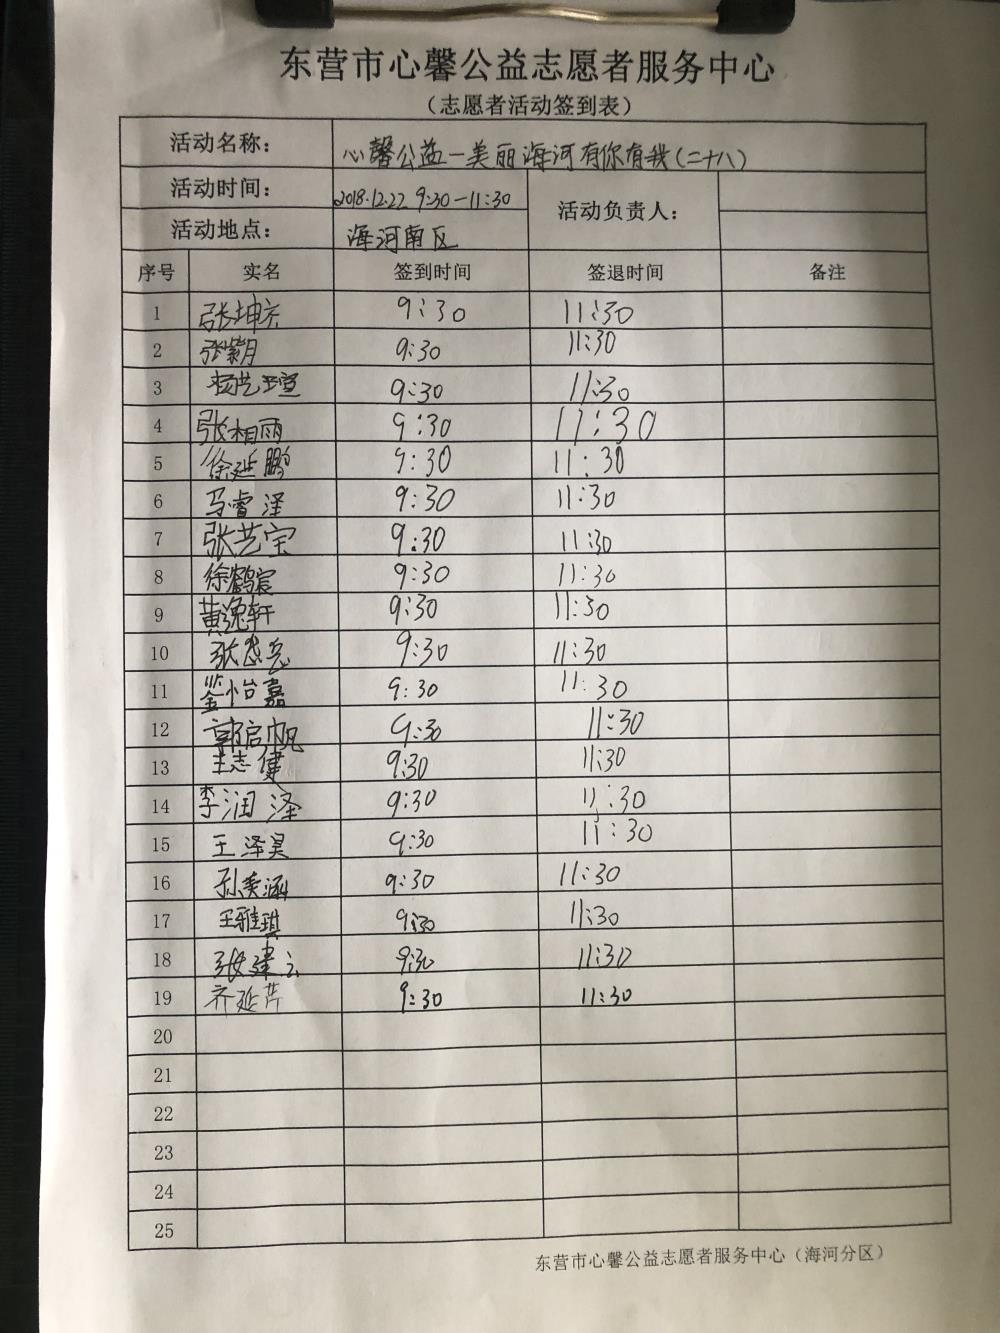 东营市心馨公益志愿者服务中心
（志愿者活动签到表）
活动名称： 心馨公益一美丽海河有你有我(二十八)
活动时间： 2018.12.22 9:30-11:30 活动负责人：
活动地点： 海河南区
序号 实名 签到时间 签退时间 备注
1 9:30 11:30
2 9:30 11:30
3 杨艺瑄 9:30 11:30
4 张相雨 9:30 11:30
5 徐延鹏 9:30 11:30
6 马睿泽 9:30 11:30
7 张艺宝 9:30 11:30
8 徐鹤宸 9:30 11:30
9 黄逸轩 9:30 11:30
10 9:30 11:30
11 9:30 11:30
12 郭启帆 9:30 11:30
13 王志健 9:30 11:30
14 李润泽 9:30 11:30
15 王泽昊 9:30 11:30
16 9:30 11:30
17 王雅琪 9:30 11:30
18 9:30 11:30
19 齐延芹 9:30 11:30
20
21
22
23
24
25
东营市心馨公益志愿者服务中心（海河分区）